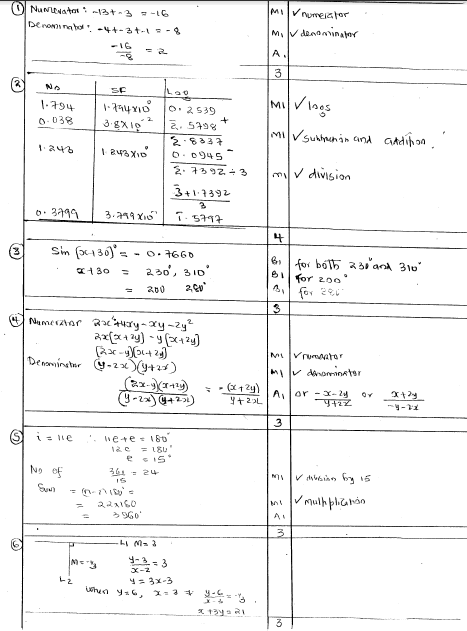 ① Numerator: -13+-3 = -16 M1 √ numerator
Denominator: -4+-3+-1 = -8 M1 √ denominator
-16/-8 = 2 A1
3
② No SF Log
1.794 1.794x10⁰ 0.2539
0.038 3.8x10⁻² 2̄.5798 + M1 √ logs
2̄.8337 M1 √ subtraction and addition.
1.243 1.243x10⁰ 0.0945 -
2̄.7392 ÷ 3 M1 √ division
3̄+1.7392
3
0.3799 3.799x10⁻¹ 1̄.5797
4
③ Sin (x+30)° = -0.7660 B1 for both 230° and 310°
x+30 = 230°, 310° B1 for 200°
= 200 280° B1 for 280°
3
④ Numerator 2x²+4xy-xy-2y²
2x(x+2y) -y(x+2y)
(2x-y)(x+2y) M1 √ numerator
Denominator (y-2x)(y+2x) M1 √ denominator
(2x-y)(x+2y)/(y-2x)(y+2x) = -(x+2y)/y+2x A1 or -x-2y/y+2x or x+2y/-y-2x
3
⑤ i = 11e ∴ 11e+e = 180°
12e = 180°
e = 15°
No of 360/15 = 24 M1 √ division by 15
Sum = (n-2)180° =
= 22x180 M1 √ multiplication
= 3960° A1
3
⑥ L1 M = 3
M = -⅓ y-3/x-2 = 3
L2 y = 3x-3
When y=6, x=3 y-6/x-3 = -⅓
x+3y=21
3